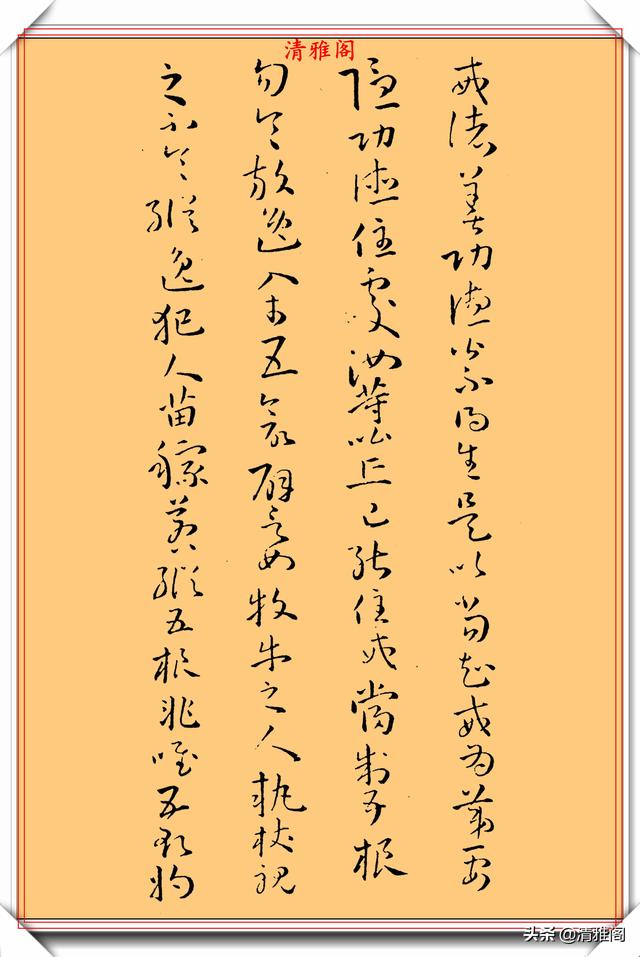 清雅阁
戒諸善功德皆不得生是以當知戒為第一安
隱功德住處汝等比丘已能住戒當制五根
勿令放逸入於五欲譬如牧牛之人執杖視
之不令縱逸犯人苗稼若縱五根非唯五欲將
头条 @清雅阁